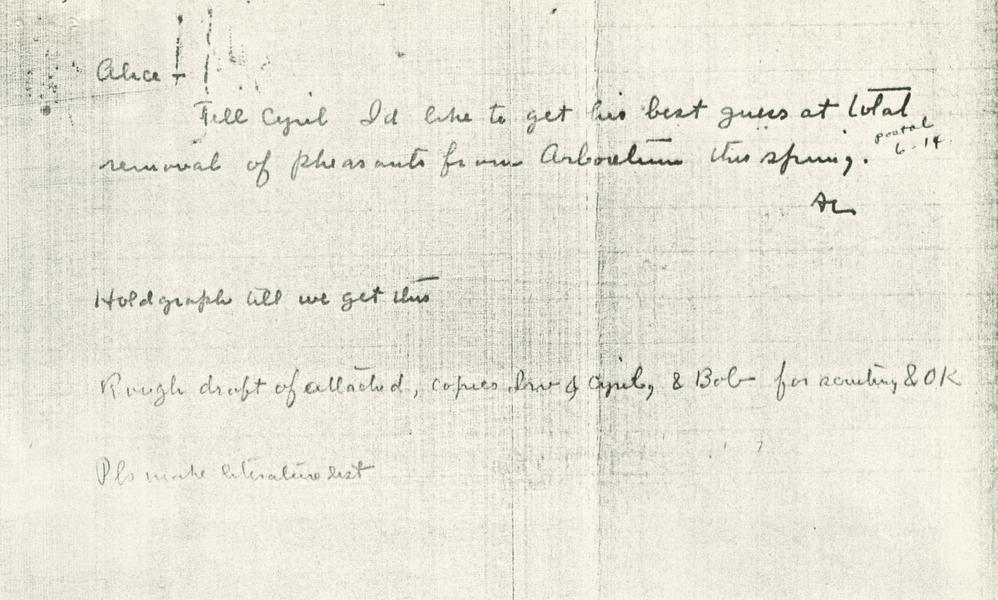 Alice -
Tell Cyril I'd like to get his best guess at total
removal of pheasants from Arboretum this spring.
postal
6-14
AL
Hold graph till we get this
Rough draft of attached, copies Irv & Cyril, & Bob for scrutiny & OK
Pls make literature list